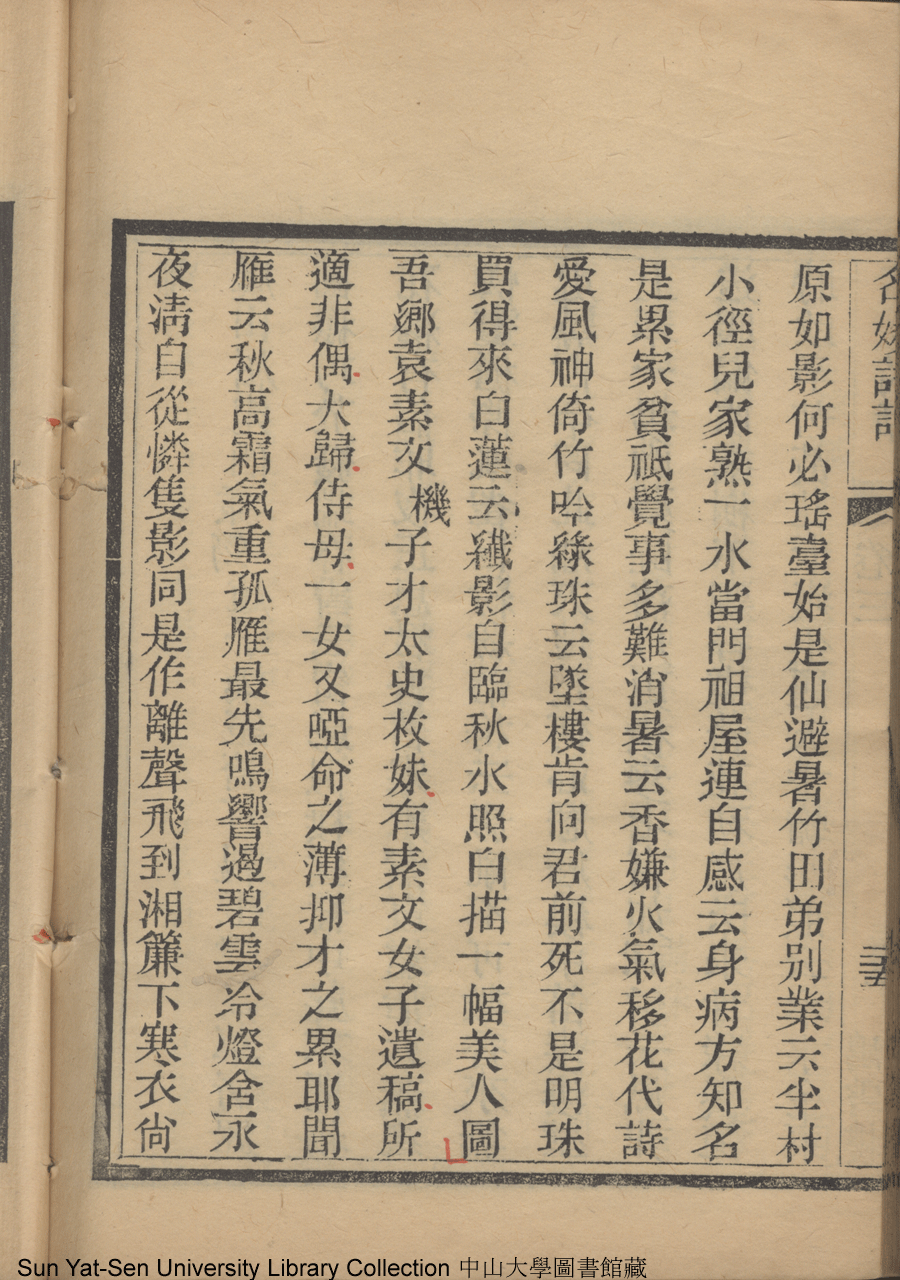 名媛詩話
三五
原如影何必瑤臺始是仙避暑竹田弟別業云半村
小徑兒家熟一水當門祖屋連自感云身病方知名
是累家貧祗覺事多難消暑云香嫌火氣移花代詩
愛風神倚竹吟綠珠云墜樓肯向君前死不是明珠
買得來白蓮云纖影自臨秋水照白描一幅美人圖
吾鄉袁素文機子才太史枚妹有素文女子遺稿所
適非偶大歸侍母一女又啞命之薄抑才之累耶聞
雁云秋高霜氣重孤雁最先鳴響遏碧雲冷燈含永
夜淸自從憐隻影同是作離聲飛到湘簾下寒衣尙
Sun Yat-Sen University Library Collection 中山大學圖書館藏